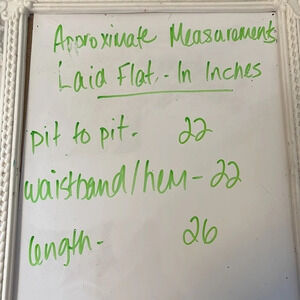 Approximate Measurements
Laid Flat - In Inches
pit to pit - 22
waistband/hem - 22
length - 26